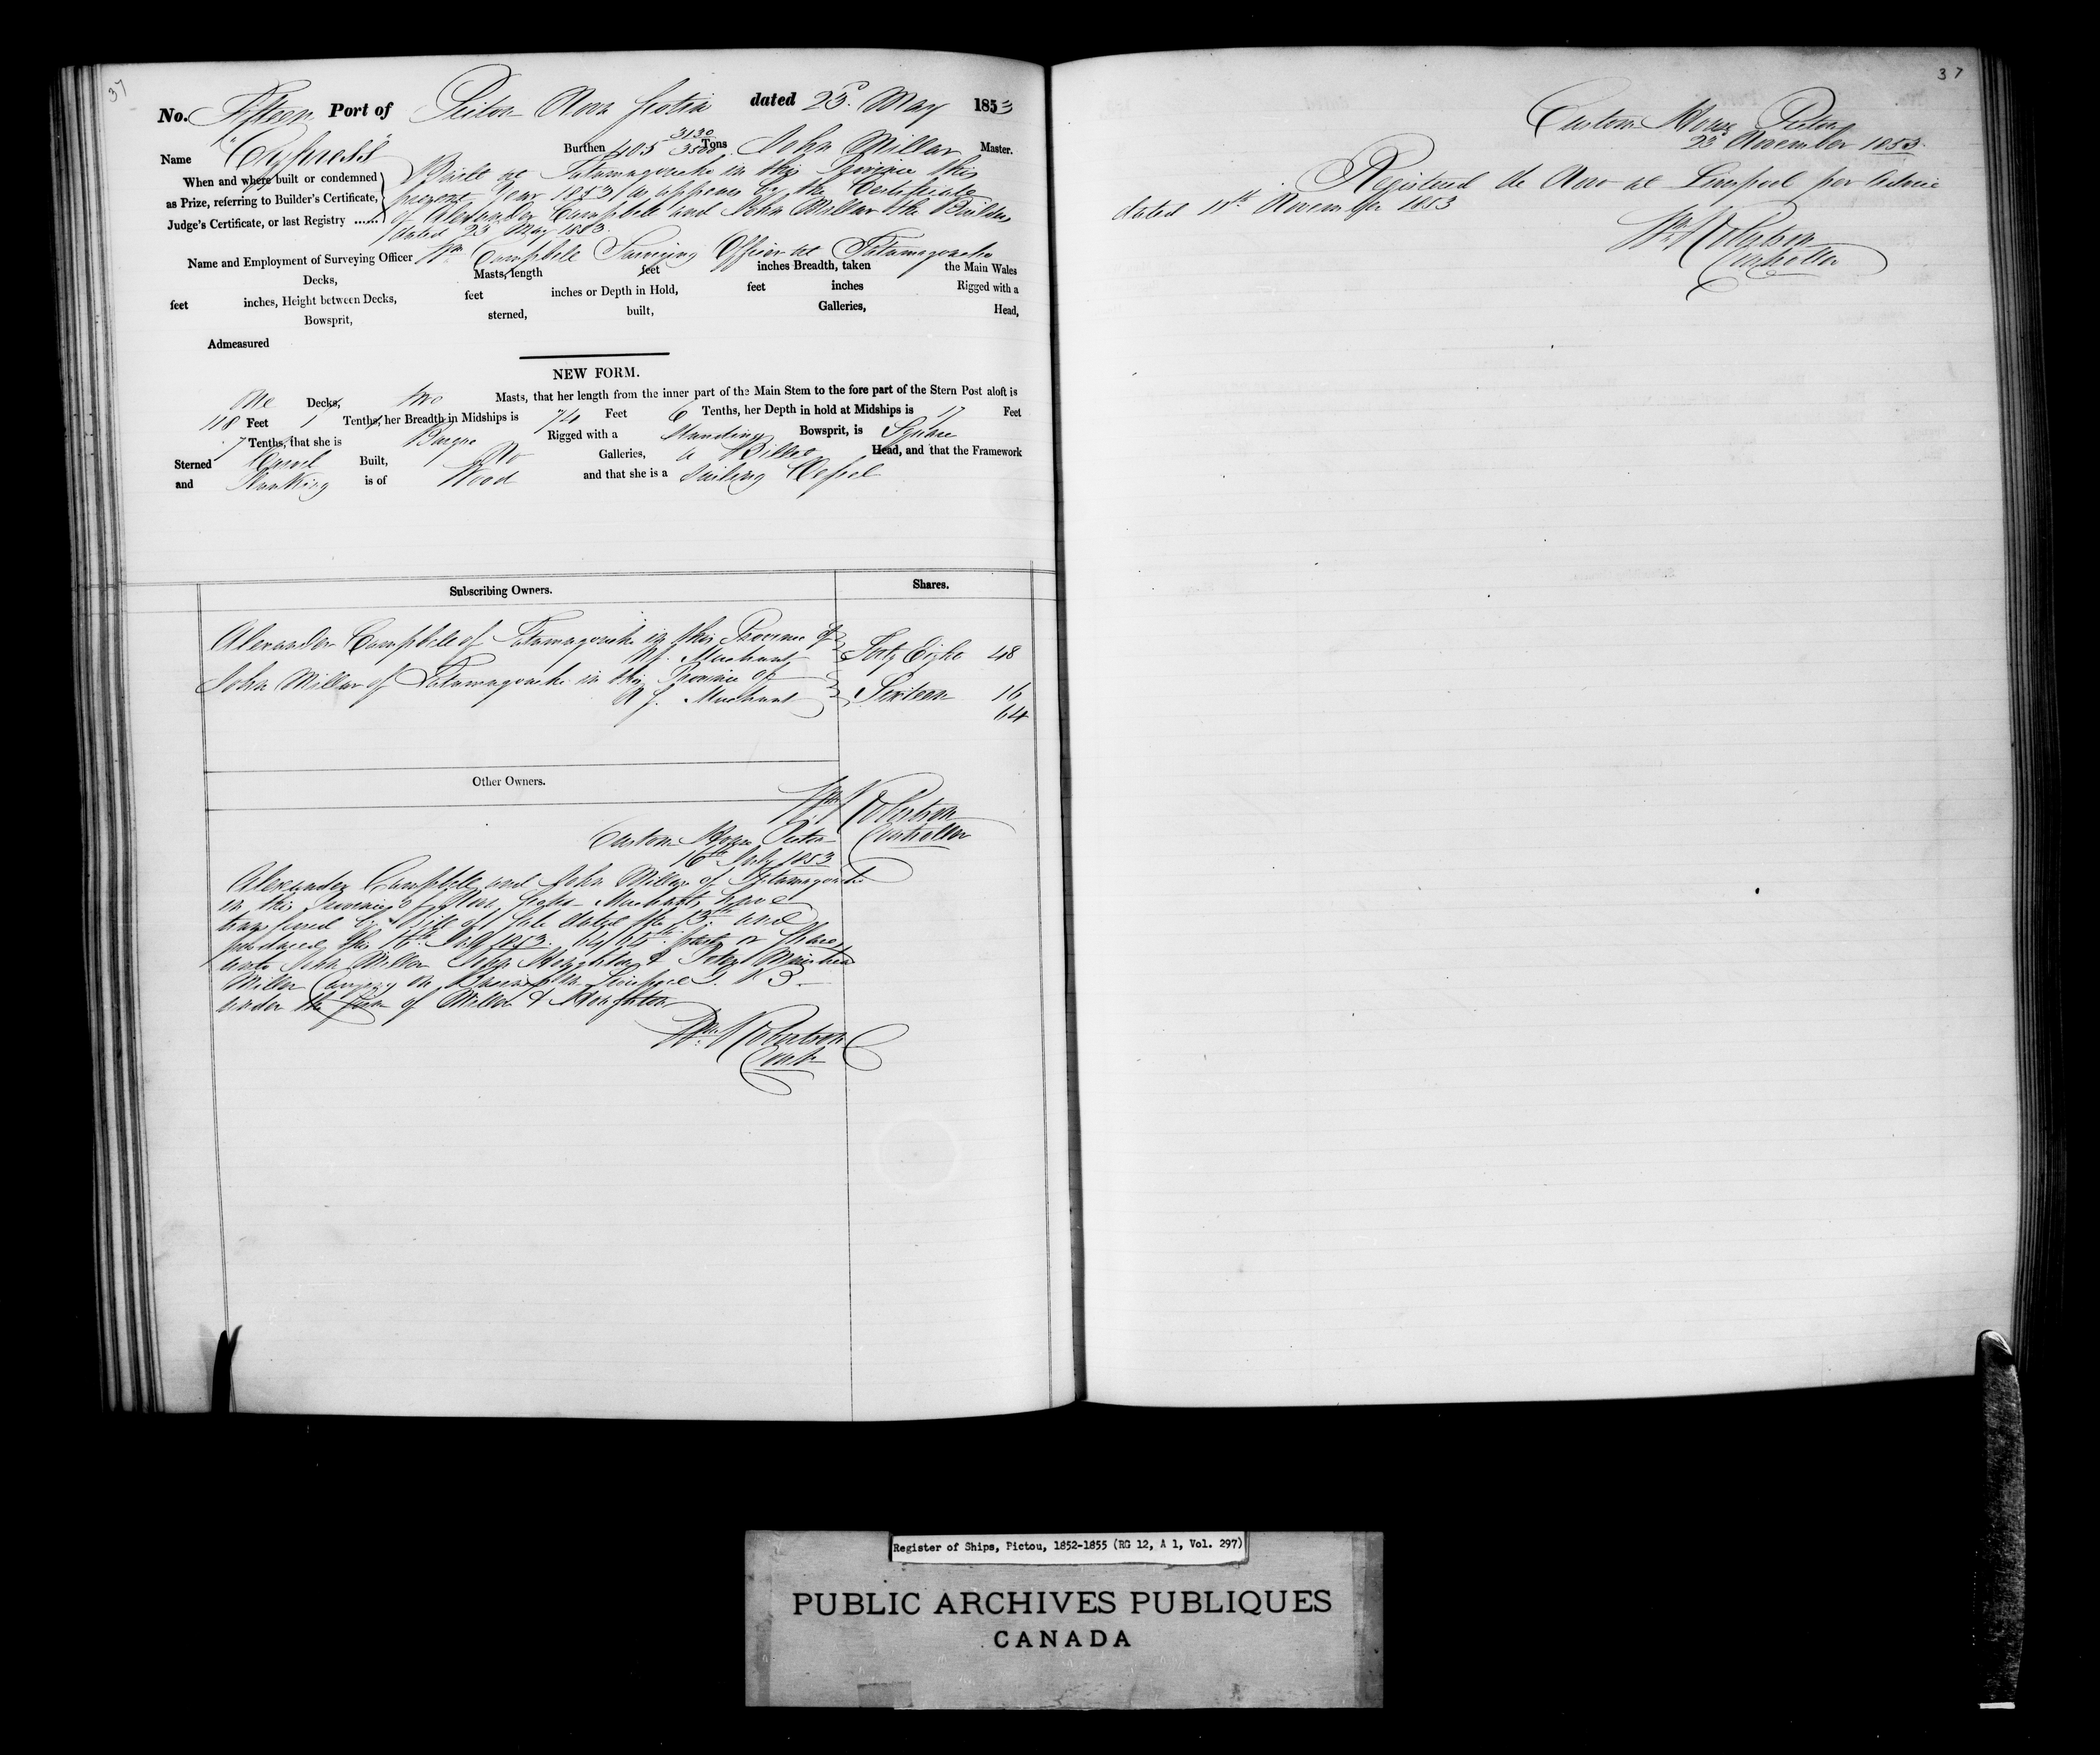 37
No. Fifteen Port of Pictou Nova Scotia dated 23d. May 1853
Name "Cypress" Burthen 405 3130/3500 Tons John Millar Master.
When and where built or condemned as Prize, referring to Builder's Certificate, Judge's Certificate, or last Registry ......
Built at Tatamagouche in this Province this
present Year 1853 as appears by the Certificate
of Alexander Campbell and John Millar the Builders
dated 23d May 1853.
Name and Employment of Surveying Officer Wm Campbell Surveying Officer at Tatamagouche
Decks, Masts, length feet inches Breadth, taken the Main Wales
feet inches, Height between Decks, feet inches or Depth in Hold, feet inches Rigged with a
Bowsprit, sterned, built, Galleries, Head,
Admeasured
NEW FORM.
One Decks, two Masts, that her length from the inner part of the Main Stem to the fore part of the Stern Post aloft is
118 Feet 1 Tenths, her Breadth in Midships is 24 Feet 6 Tenths, her Depth in hold at Midships is 17 Feet
7 Tenths, that she is Barque Rigged with a Standing Bowsprit, is Square
Sterned Carvel Built, No Galleries, a Billet Head, and that the Framework
and Planking is of Wood and that she is a Sailing Vessel
Subscribing Owners. Shares.
Alexander Campbell of Tatamagouche in this Province of
N.S. Merchant Forty Eight 48
John Millar of Tatamagouche in this Province of
N S. Merchant Sixteen 16
64
Other Owners.
Wm Robertson
Controller
Custom House Pictou
16th July 1853
Alexander Campbell and John Millar of Tatamagouche
in this Province of Nova Scotia Merchants have
transferred by Bill of Sale dated the 13th and
produced this 16th July 1853. 64/64th parts or Shares
unto John Miller Houghton & Peter
Miller Carrying on Business in Liverpool G. B.
under the firm of Miller & Houghton
Wm. Robertson
Contr
37
Custom House Pictou
23d November 1853.
Registered de Novo at Liverpool per advice
dated 11th November 1853
Wm Robertson
Controller
Register of Ships, Pictou, 1852-1855 (RG 12, A 1, Vol. 297)
PUBLIC ARCHIVES PUBLIQUES
CANADA